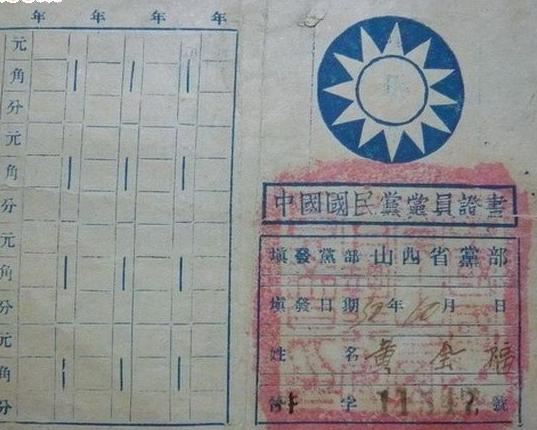 年 年 年 年
元
角
分
元
角
分
元
角
分
元
角
分
中國國民黨黨員證書
填發黨部 山西省黨部
填發日期 年 月 日
姓名 黃金
字 號